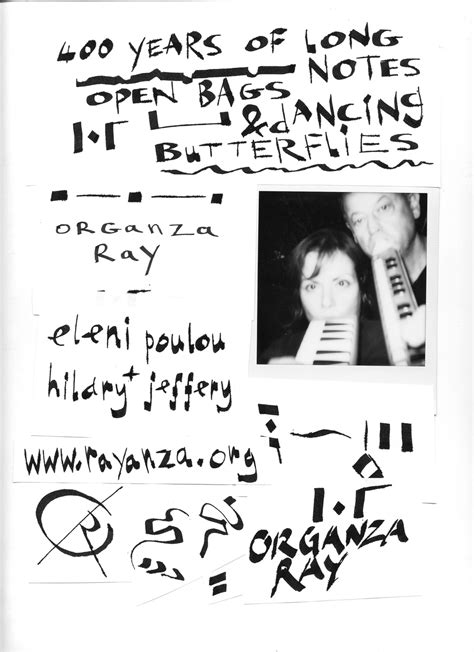 400 YEARS OF LONG
NOTES
OPEN BAGS
& dANCING
BUTTERFLIES
ORGANZA
RAY
eleni poulou
hilary + jeffery
www.rayanza.org
R
ORGANZA
RAY